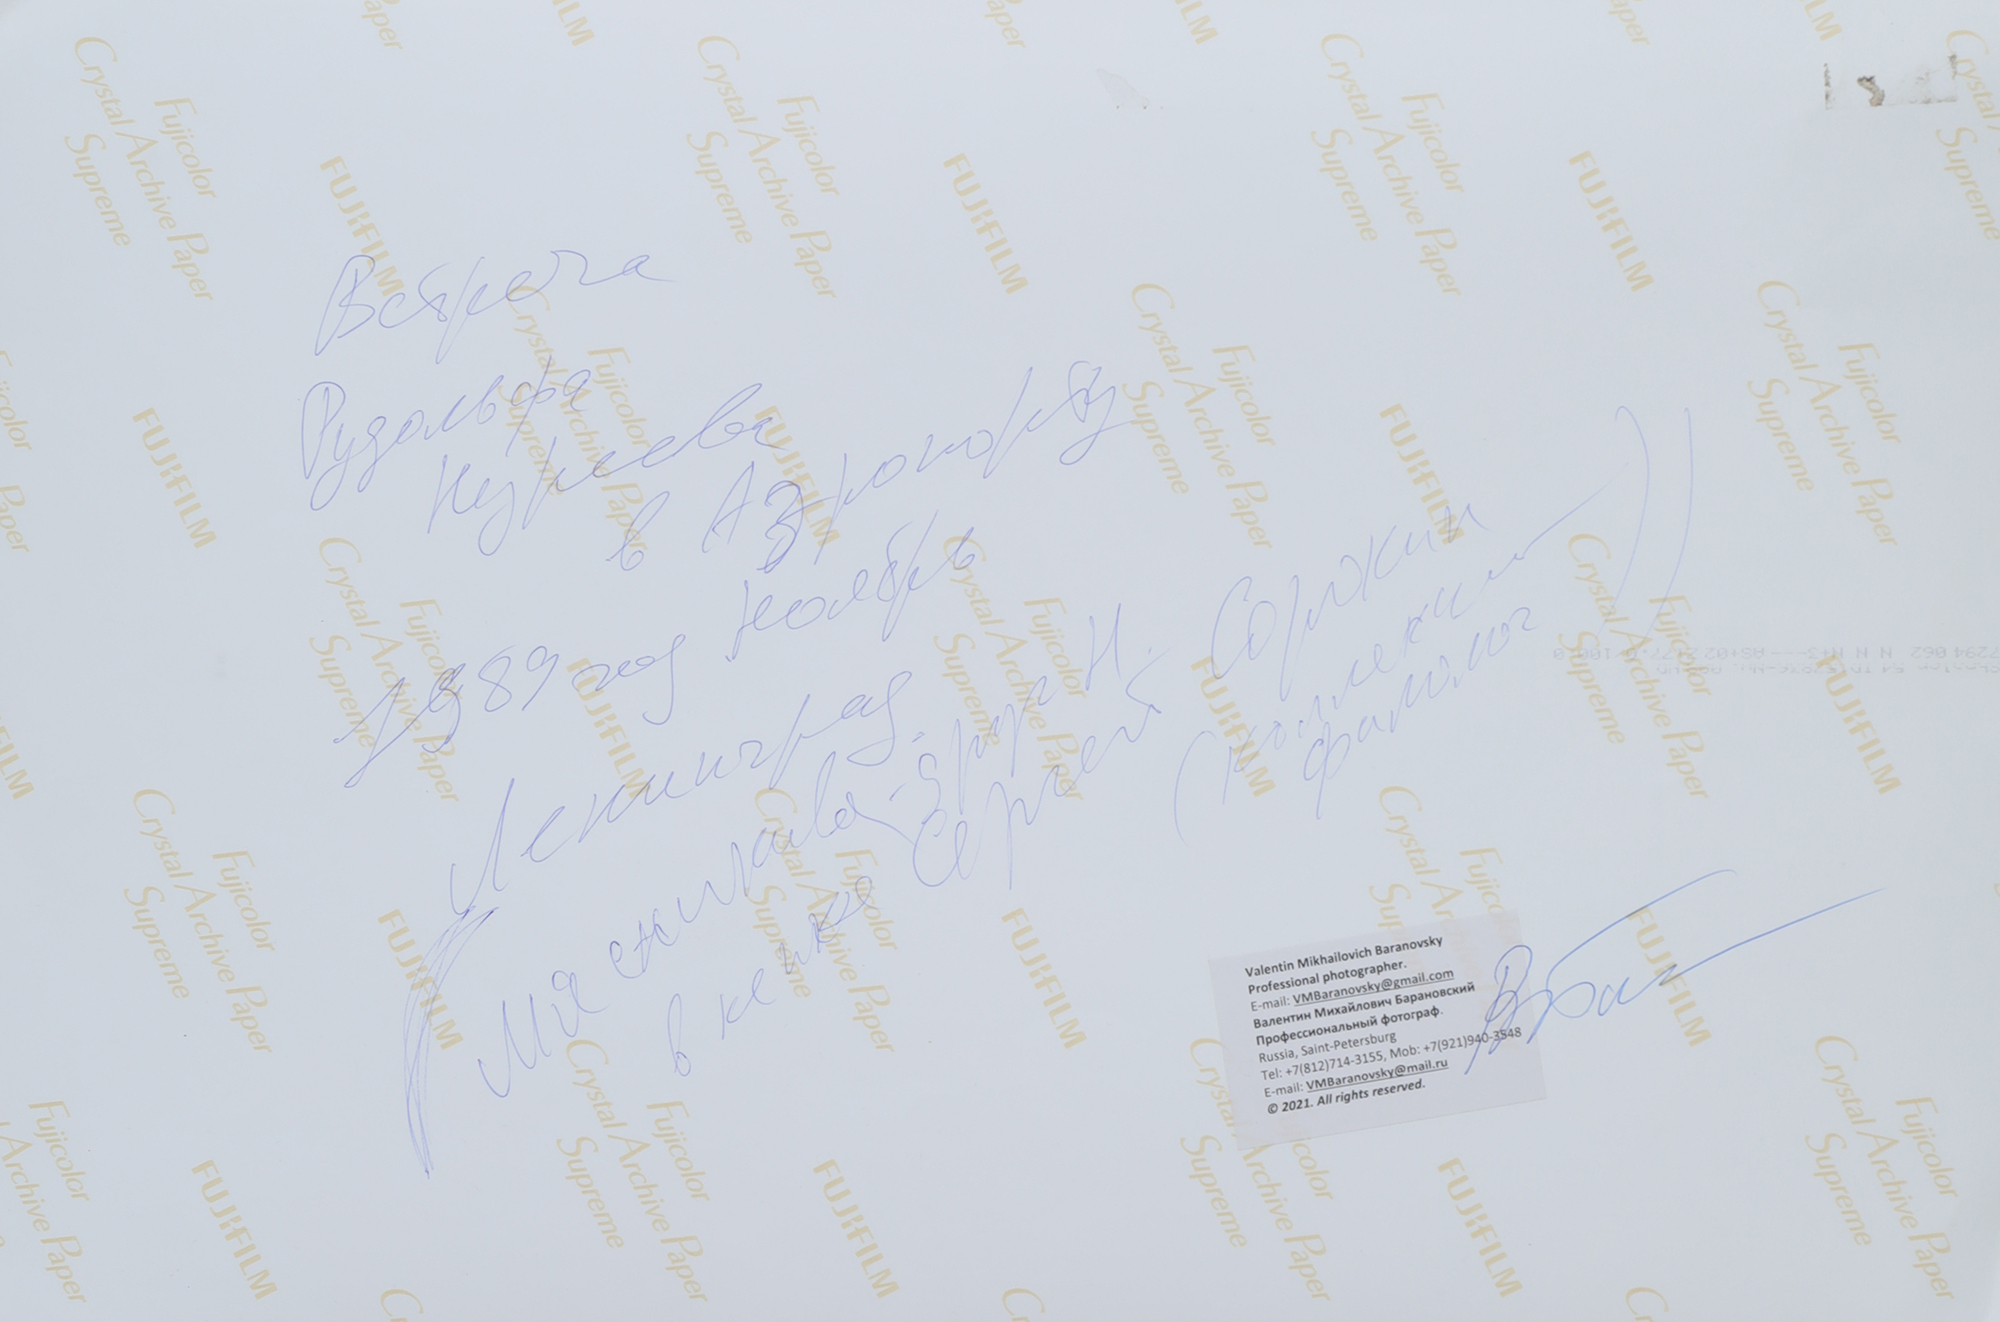 Встреча
Рудольфа
Нуреева
в Аэропорту
1989 год Ноябрь
Ленинград.
(Мя снимава - друг Н.
в кепке Сергей Сорокин
(коллекци
фамилог ))
Valentin Mikhailovich Baranovsky
Professional photographer.
E-mail: VMBaranovsky@gmail.com
Валентин Михайлович Барановский
Профессиональный фотограф.
Russia, Saint-Petersburg
Tel: +7(812)714-3155, Mob: +7(921)940-3548
E-mail: VMBaranovsky@mail.ru
© 2021. All rights reserved.
Fujicolor
Crystal Archive Paper
Supreme
FUJIFILM